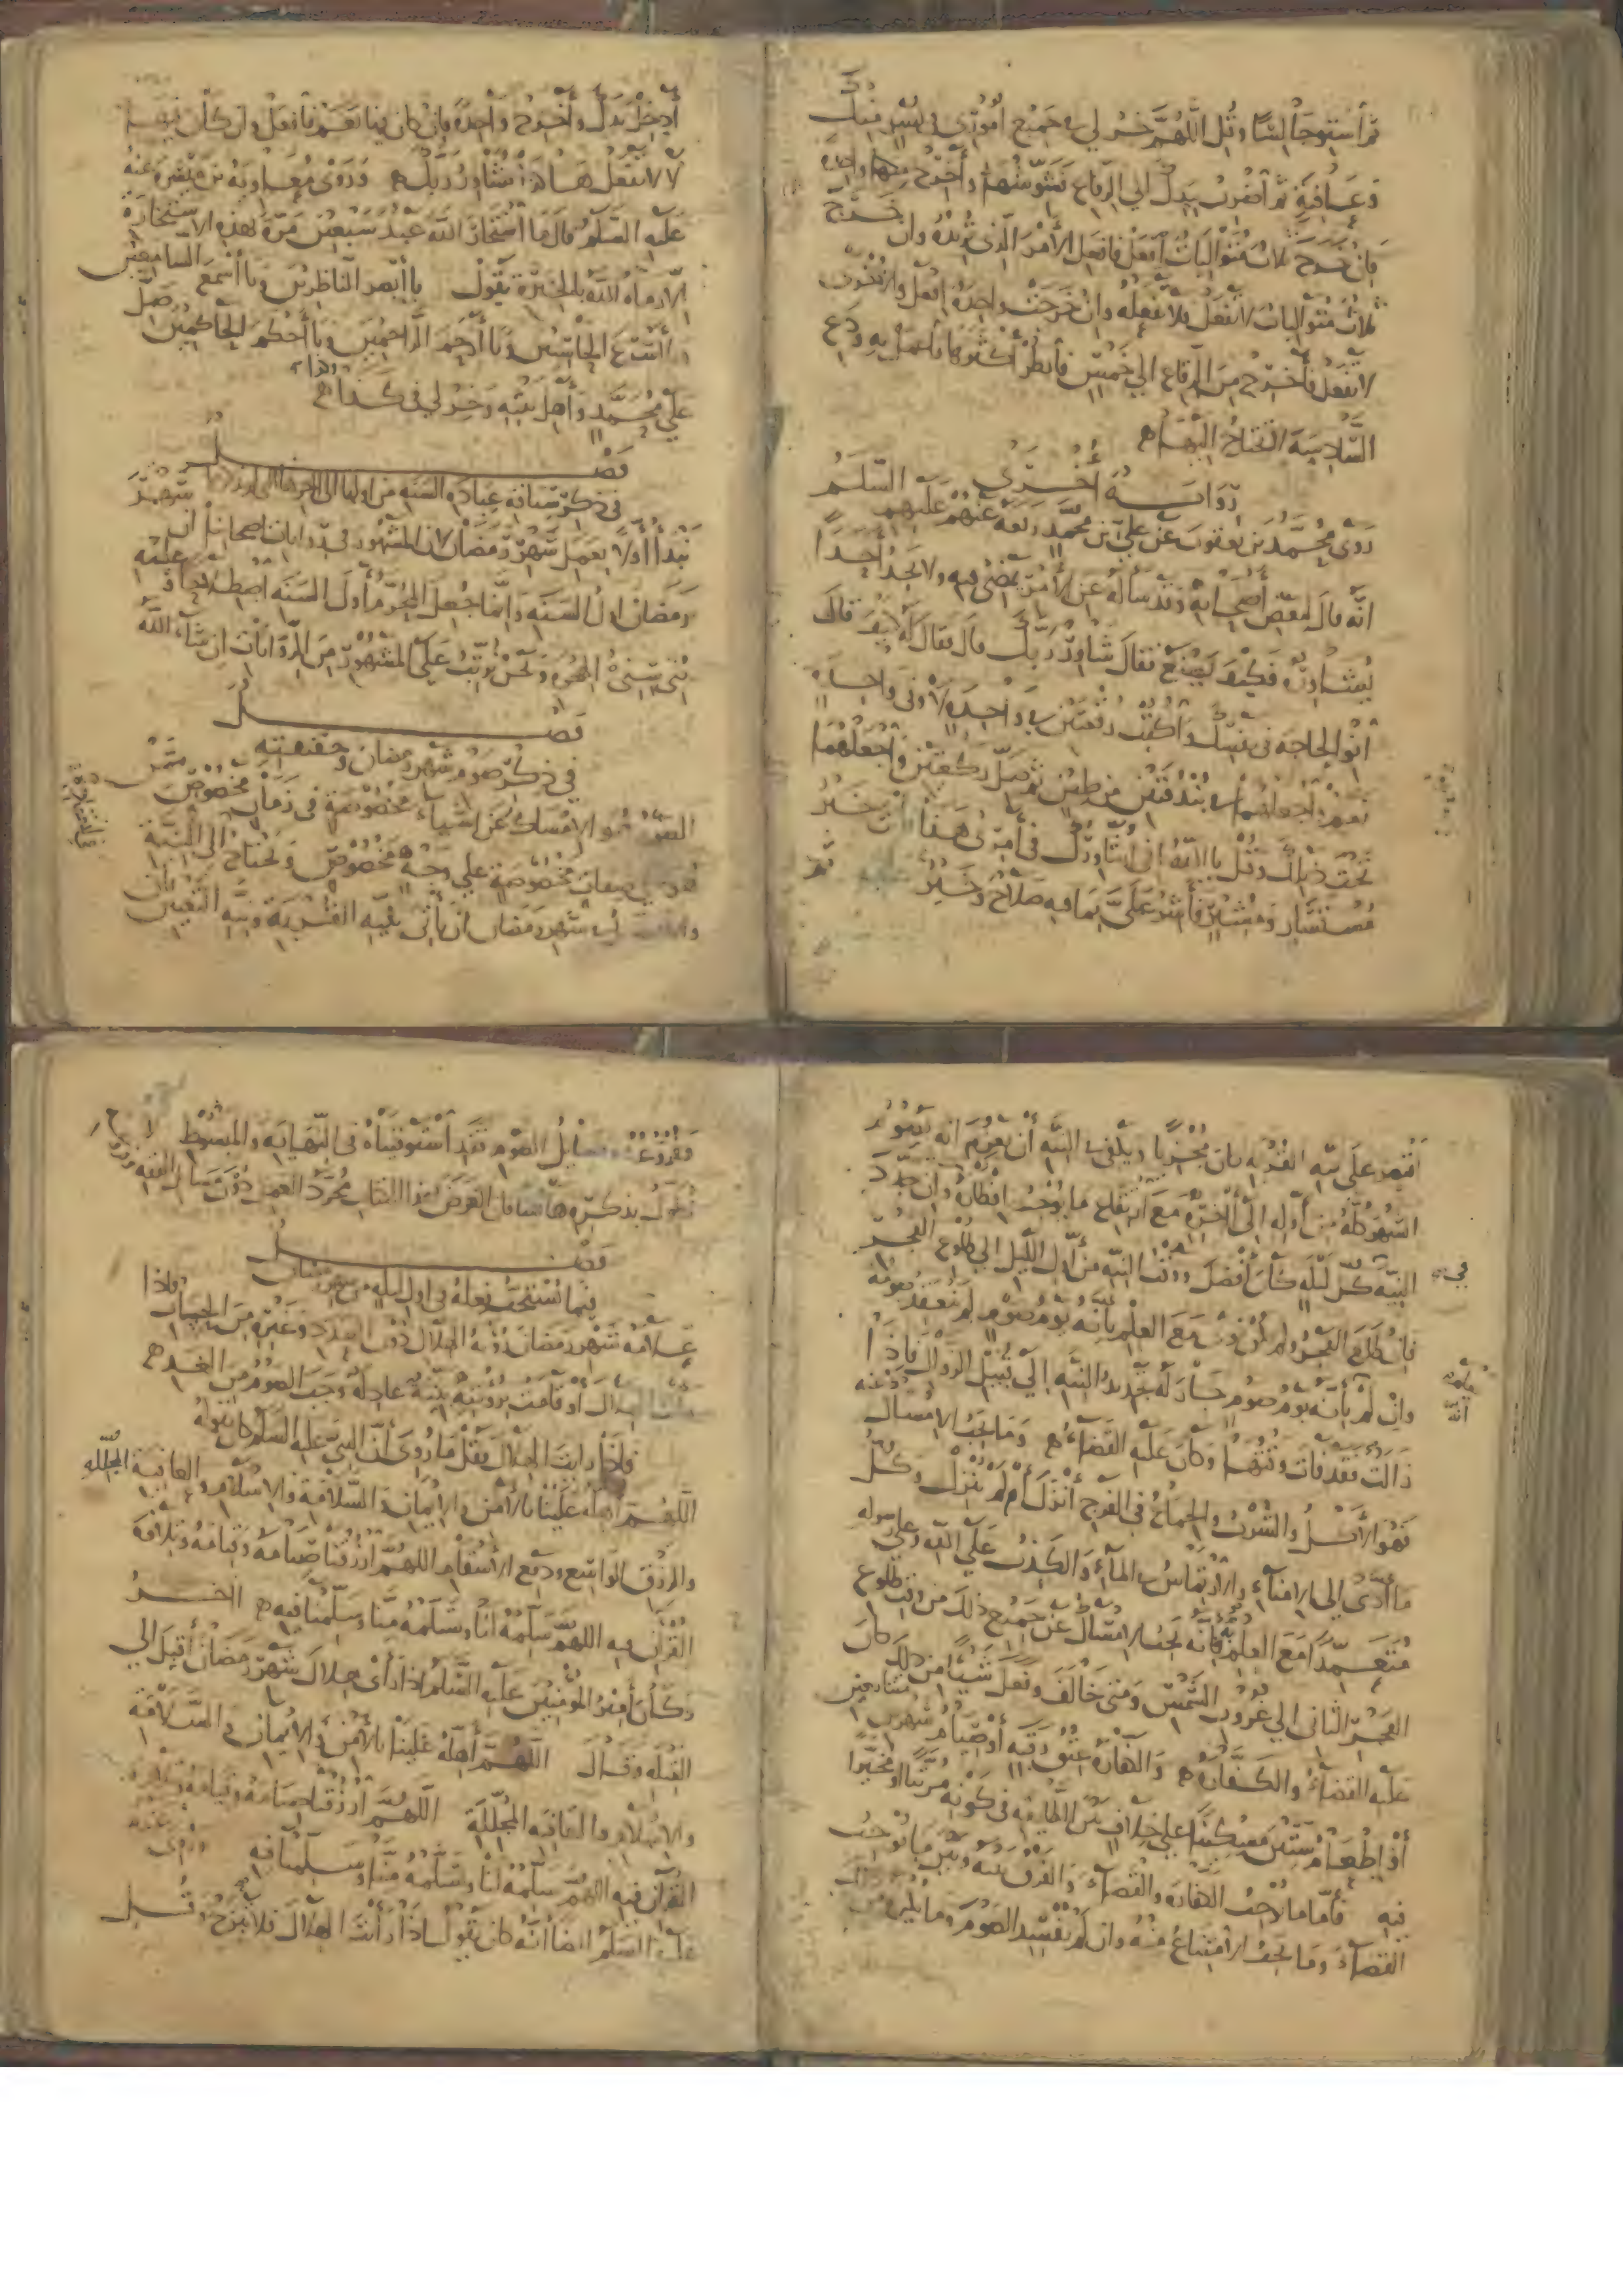 ثم استو جالسا وقل اللهم خر لي في جميع أموري في يسر منك
وعافية ثم اضرب بيدك الي الرقاع فشوشها وأخرج واحدة
فان خرج ثلاث متواليات افعل فافعل الأمر الذي تريده وان خرج
ثلاث متواليات لا تفعل فلا تفعله وان خرجت واحدة افعل والاخرى
لا تفعل فأخرج من الرقاع الي خمس فانظر أكثرها فاعمل به ودع
السادسة لا تحتاج اليها
رواية أخرى
روى محمد بن يعقوب عن علي بن محمد رفعه عنهم عليهم السلم
انه قال لبعض أصحابه وقد سأله عن الأمر يمضي فيه ولا يجد أحدا
يشاوره فكيف يصنع فقال شاور ربك قال فقال له كيف قال
انو الحاجة في نفسك واكتب رقعتين في واحدة لا وفي واحدة
نعم واجعلهما في بندقتين من طين ثم صل ركعتين واجعلهما
تحت ذيلك وقل يا الله اني اشاورك في أمري هذا وأنت خير
مستشار ومشير فأشر علي بما فيه صلاح وخير ثم
أدخل يدك وأخرج واحدة فان كان فيها نعم فافعل وان كان فيها
لا لا تفعل هكذا تشاور ربك وروى معاوية بن ميسرة عنه
عليه السلم قال ما استخار الله عبد سبعين مرة بهذه الاستخارة
الا رماه الله بالخيرة يقول يا أبصر الناظرين ويا أسمع السامعين
ويا أسرع الحاسبين ويا أرحم الراحمين ويا أحكم الحاكمين صل
علي محمد وأهل بيته وخر لي في كذا وكذا
فصل
في ذكر سياقة عبادة السنة من اولها الى اخرها
نبدأ أولا بعمل شهر رمضان لان المشهور في روايات اصحابنا ان شهر
رمضان اول السنة وانما جعل المحرم أول السنة اصطلاحا وعليه
بني سني الهجرة ونحن نرتب على المشهور من الروايات ان شاء الله
فصل
في ذكر صوم شهر رمضان وحقيقته
الصوم هو الامساك عن اشياء مخصوصة في زمان مخصوص
علي وجه مخصوص ويحتاج الى النية
في شهر رمضان ان يأتي بنية القربة ونية التعيين
اقتصر على نية القربة كان مجزيا ويكفي في النية أن يعزم انه يصوم
الشهر كله من أوله الى آخره مع ارتفاع ما يوجب افطاره وان جدد
النية كل ليلة كان أفضل ووقت النية من أول الليل الي طلوع الفجر
فان طلع الفجر ولم يكن نوى مع العلم بانه يوم صوم لم ينعقد صومه
وان لم بأنه يوم صوم جاز له تجديد النية الي قبل الزوال فاذا
زالت فقد فات وقتها وكان عليه القضاء وما يجب الامساك عنه
فهو الأكل والشرب والجماع في الفرج أنزل أم لم ينزل وكل
ما أدى الى الامناء والارتماس في الماء والكذب علي الله وعلي رسوله
متعمدا مع العلم فإنه يجب الامساك عن جميع ذلك من وقت طلوع
الفجر الثاني الي غروب الشمس ومتى خالف وفعل شيئا من ذلك كان
عليه القضاء والكفارة والكفارة عتق رقبة أو صيام شهرين متتابعين
أو اطعام ستين مسكينا علي خلاف بين الطائفة في كونه مرتبا او مخيرا
فيه فأما ما يوجب الكفارة والقضاء والفرق بينه وبين ما يوجب
القضاء وما يجب الامتناع منه وان لم يفسد الصوم وما
وفروعه ومسايل الصوم فقد استوفيناه في النهاية والمبسوط لا
نطول بذكره هاهنا فان الغرض بهذا الكتاب مجرد العمل دون مسايل الفقه
فصل
فيما يستحب فعله في اول ليلة من شهر رمضان
علامة شهر رمضان رؤية الهلال دون العدد وغيره من الحساب فاذا
الهلال أو قامت برؤيته بينة عادلة وجب الصوم من الغد
فاذا رأيت الهلال فقل ما روى أن النبي عليه السلم كان يقوله
اللهم أهله علينا بالأمن والايمان والسلامة والاسلام والعافية المجللة
والرزق الواسع ودفع الأسقام اللهم ارزقنا صيامه وقيامه وتلاوة
القرآن فيه اللهم سلمه لنا وتسلمه منا وسلمنا فيه
وكان أمير المؤمنين عليه السلم اذا رأى هلال شهر رمضان أقبل الي
القبلة وقال اللهم أهله علينا بالأمن والايمان والسلامة
والاسلام والعافية المجللة اللهم ارزقنا صيامه وقيامه
القرآن فيه اللهم سلمه لنا وتسلمه منا وسلمنا فيه وروى عنه
عليه السلم ايضا أنه كان يقول اذا رأيت الهلال فلا تبرح وقل